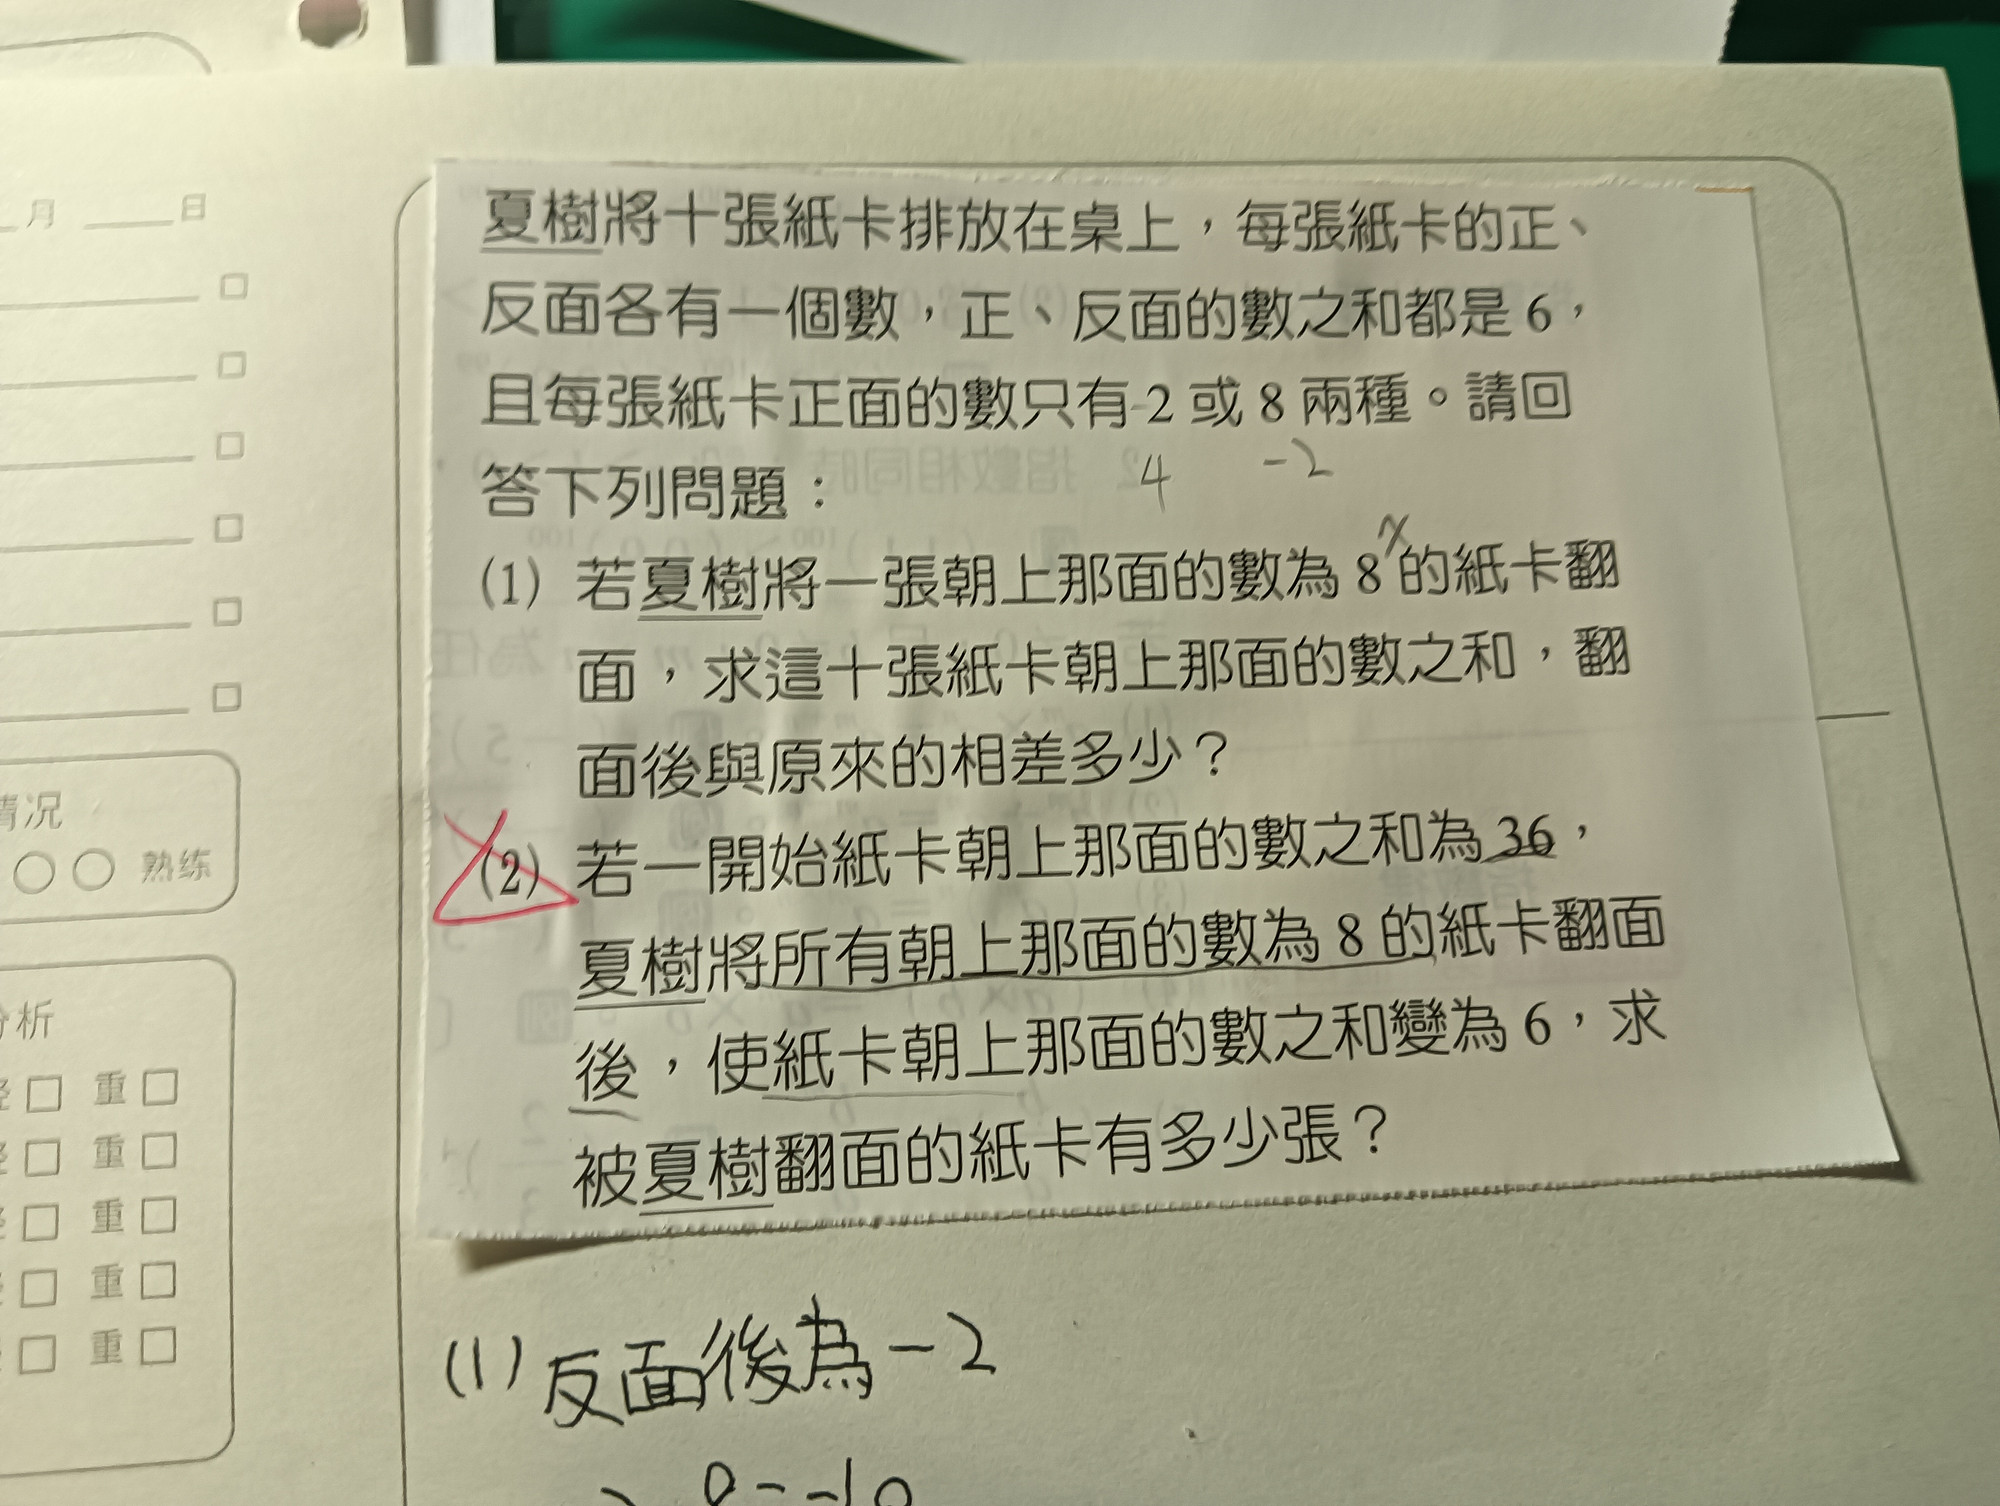 月 日
夏樹將十張紙卡排放在桌上，每張紙卡的正、
反面各有一個數，正、反面的數之和都是 6，
且每張紙卡正面的數只有 2 或 8 兩種。請回
答下列問題：
4 -2
(1) 若夏樹將一張朝上那面的數為 8 的紙卡翻
面，求這十張紙卡朝上那面的數之和，翻
面後與原來的相差多少？
(2) 若一開始紙卡朝上那面的數之和為 36，
夏樹將所有朝上那面的數為 8 的紙卡翻面
後，使紙卡朝上那面的數之和變為 6，求
被夏樹翻面的紙卡有多少張？
(1) 反面後為 -2
情况
熟练
分析
重
重
重
重
重